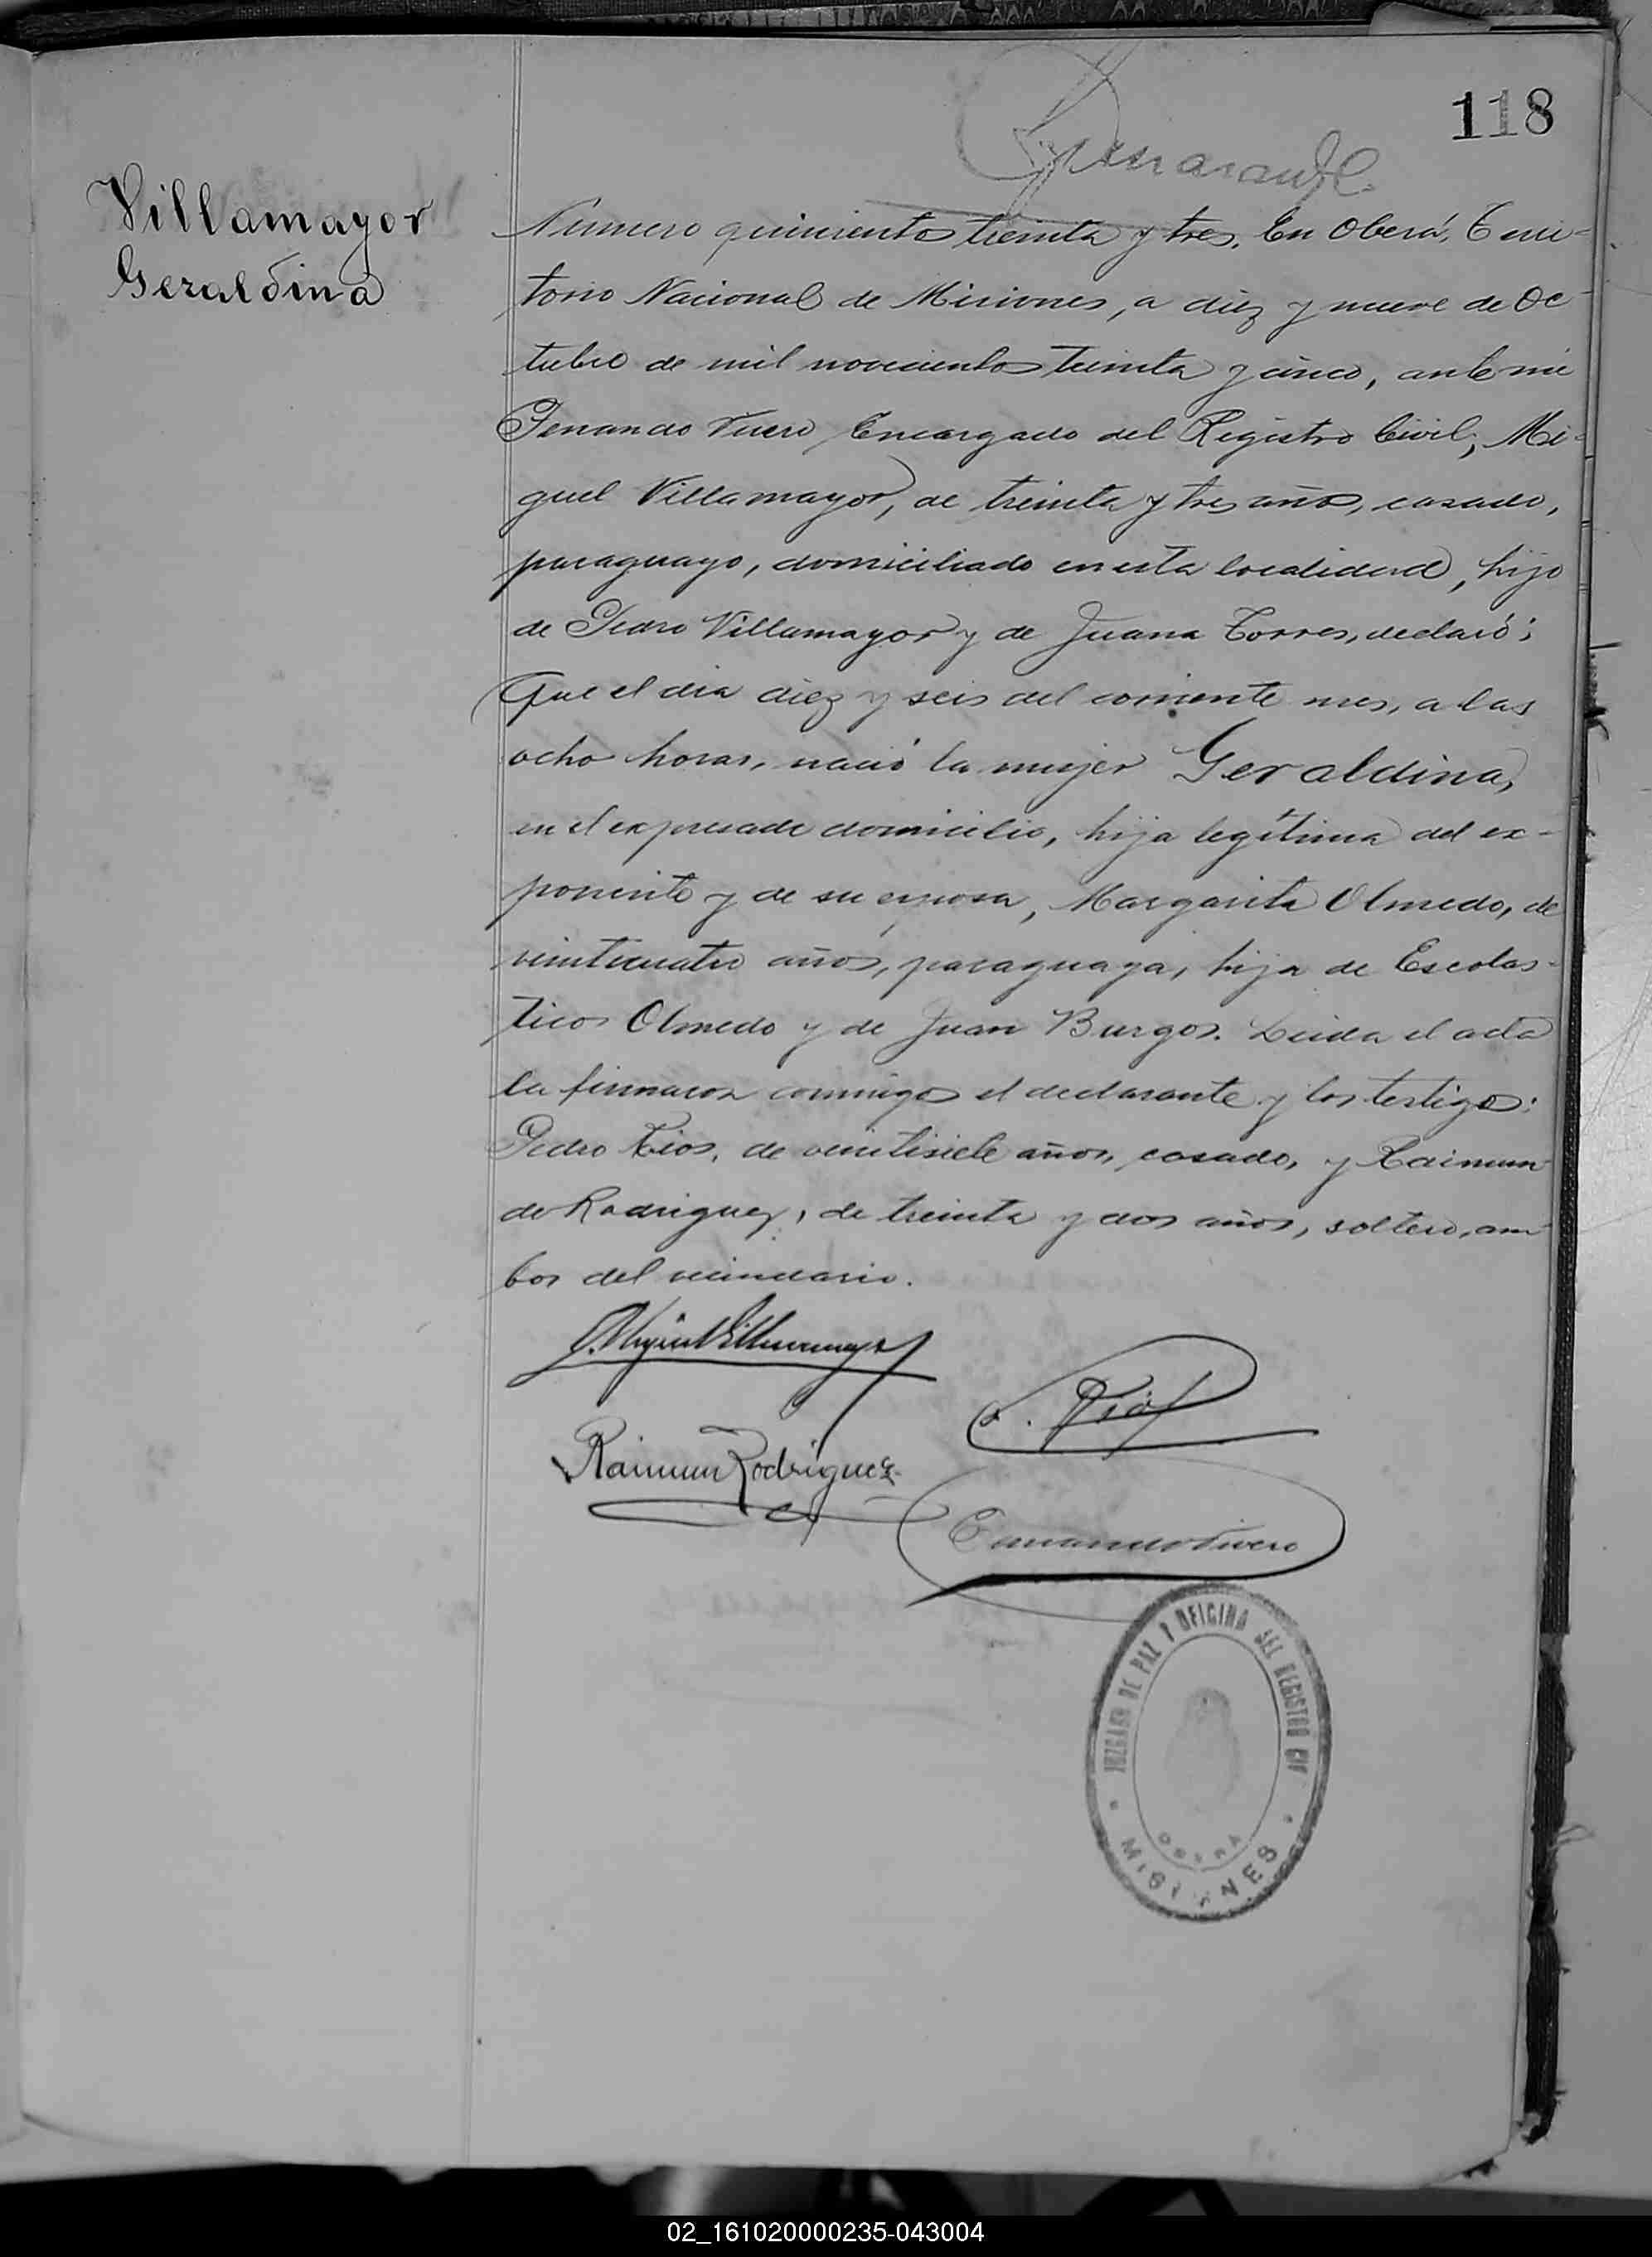 118
Villamayor
Geraldina
Número quinientos treinta y tres. En Oberá, Terri-
torio Nacional de Misiones, a diez y nueve de Oc-
tubre de mil novecientos treinta y cinco, ante mi
Fernando Vivero Encargado del Registro Civil, Mi-
guel Villamayor, de treinta y tres años, casado,
paraguayo, domiciliado en esta localidad, hijo
de Pedro Villamayor y de Juana Torres, declaró:
Que el dia diez y seis del corriente mes, a las
ocho horas, nació la mujer Geraldina,
en el expresado domicilio, hija legítima del ex-
ponente y de su esposa, Margarita Olmedo, de
veinticuatro años, paraguaya, hija de Escolas-
ticos Olmedo y de Juan Burgos. Leida el acta
la firmaron conmigo el declarante y los testigos:
Pedro Rios, de veintisiete años, casado, y Raimun
do Rodriguez, de treinta y dos años, soltero, am
bos del vecindario.
Miguel Villamayor
Rios
Raimun Rodriguez
JUZGADO DE PAZ Y OFICINA DEL REGISTRO CIV
OBERA
MISIONES
02_161020000235-043004